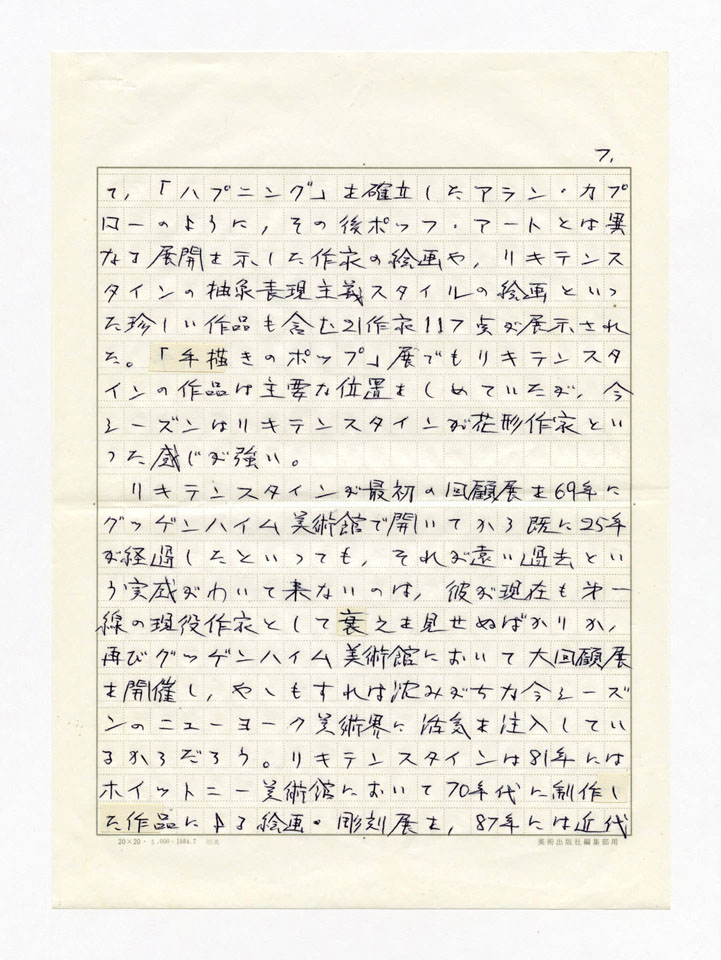 7.
て,「ハプニング」を確立したアラン・カプ
ローのように,その後ポップ・アートとは異
なる展開を示した作家の絵画や,リキテンス
タインの抽象表現主義スタイルの絵画といっ
た珍しい作品も含む21作家117点が展示され
た。「手描きのポップ」展でもリキテンスタ
インの作品は主要な位置をしめていたが,今
シーズンはリキテンスタインが花形作家とい
った感じが強い。
リキテンスタインが最初の回顧展を69年に
グッゲンハイム美術館で開いてから既に25年
が経過したといっても,それが遠い過去とい
う実感がわいて来ないのは,彼が現在も第一
線の現役作家として衰えを見せぬばかりか,
再びグッゲンハイム美術館において大回顧展
を開催し,やゝもすれば沈みがちな今シーズ
ンのニューヨーク美術界に活気を注入してい
るからだろう。リキテンスタインは81年には
ホイットニー美術館において70年代に制作し
た作品による絵画・彫刻展を,87年には近代
20×20・5.000・1984.7
美術出版社編集部用